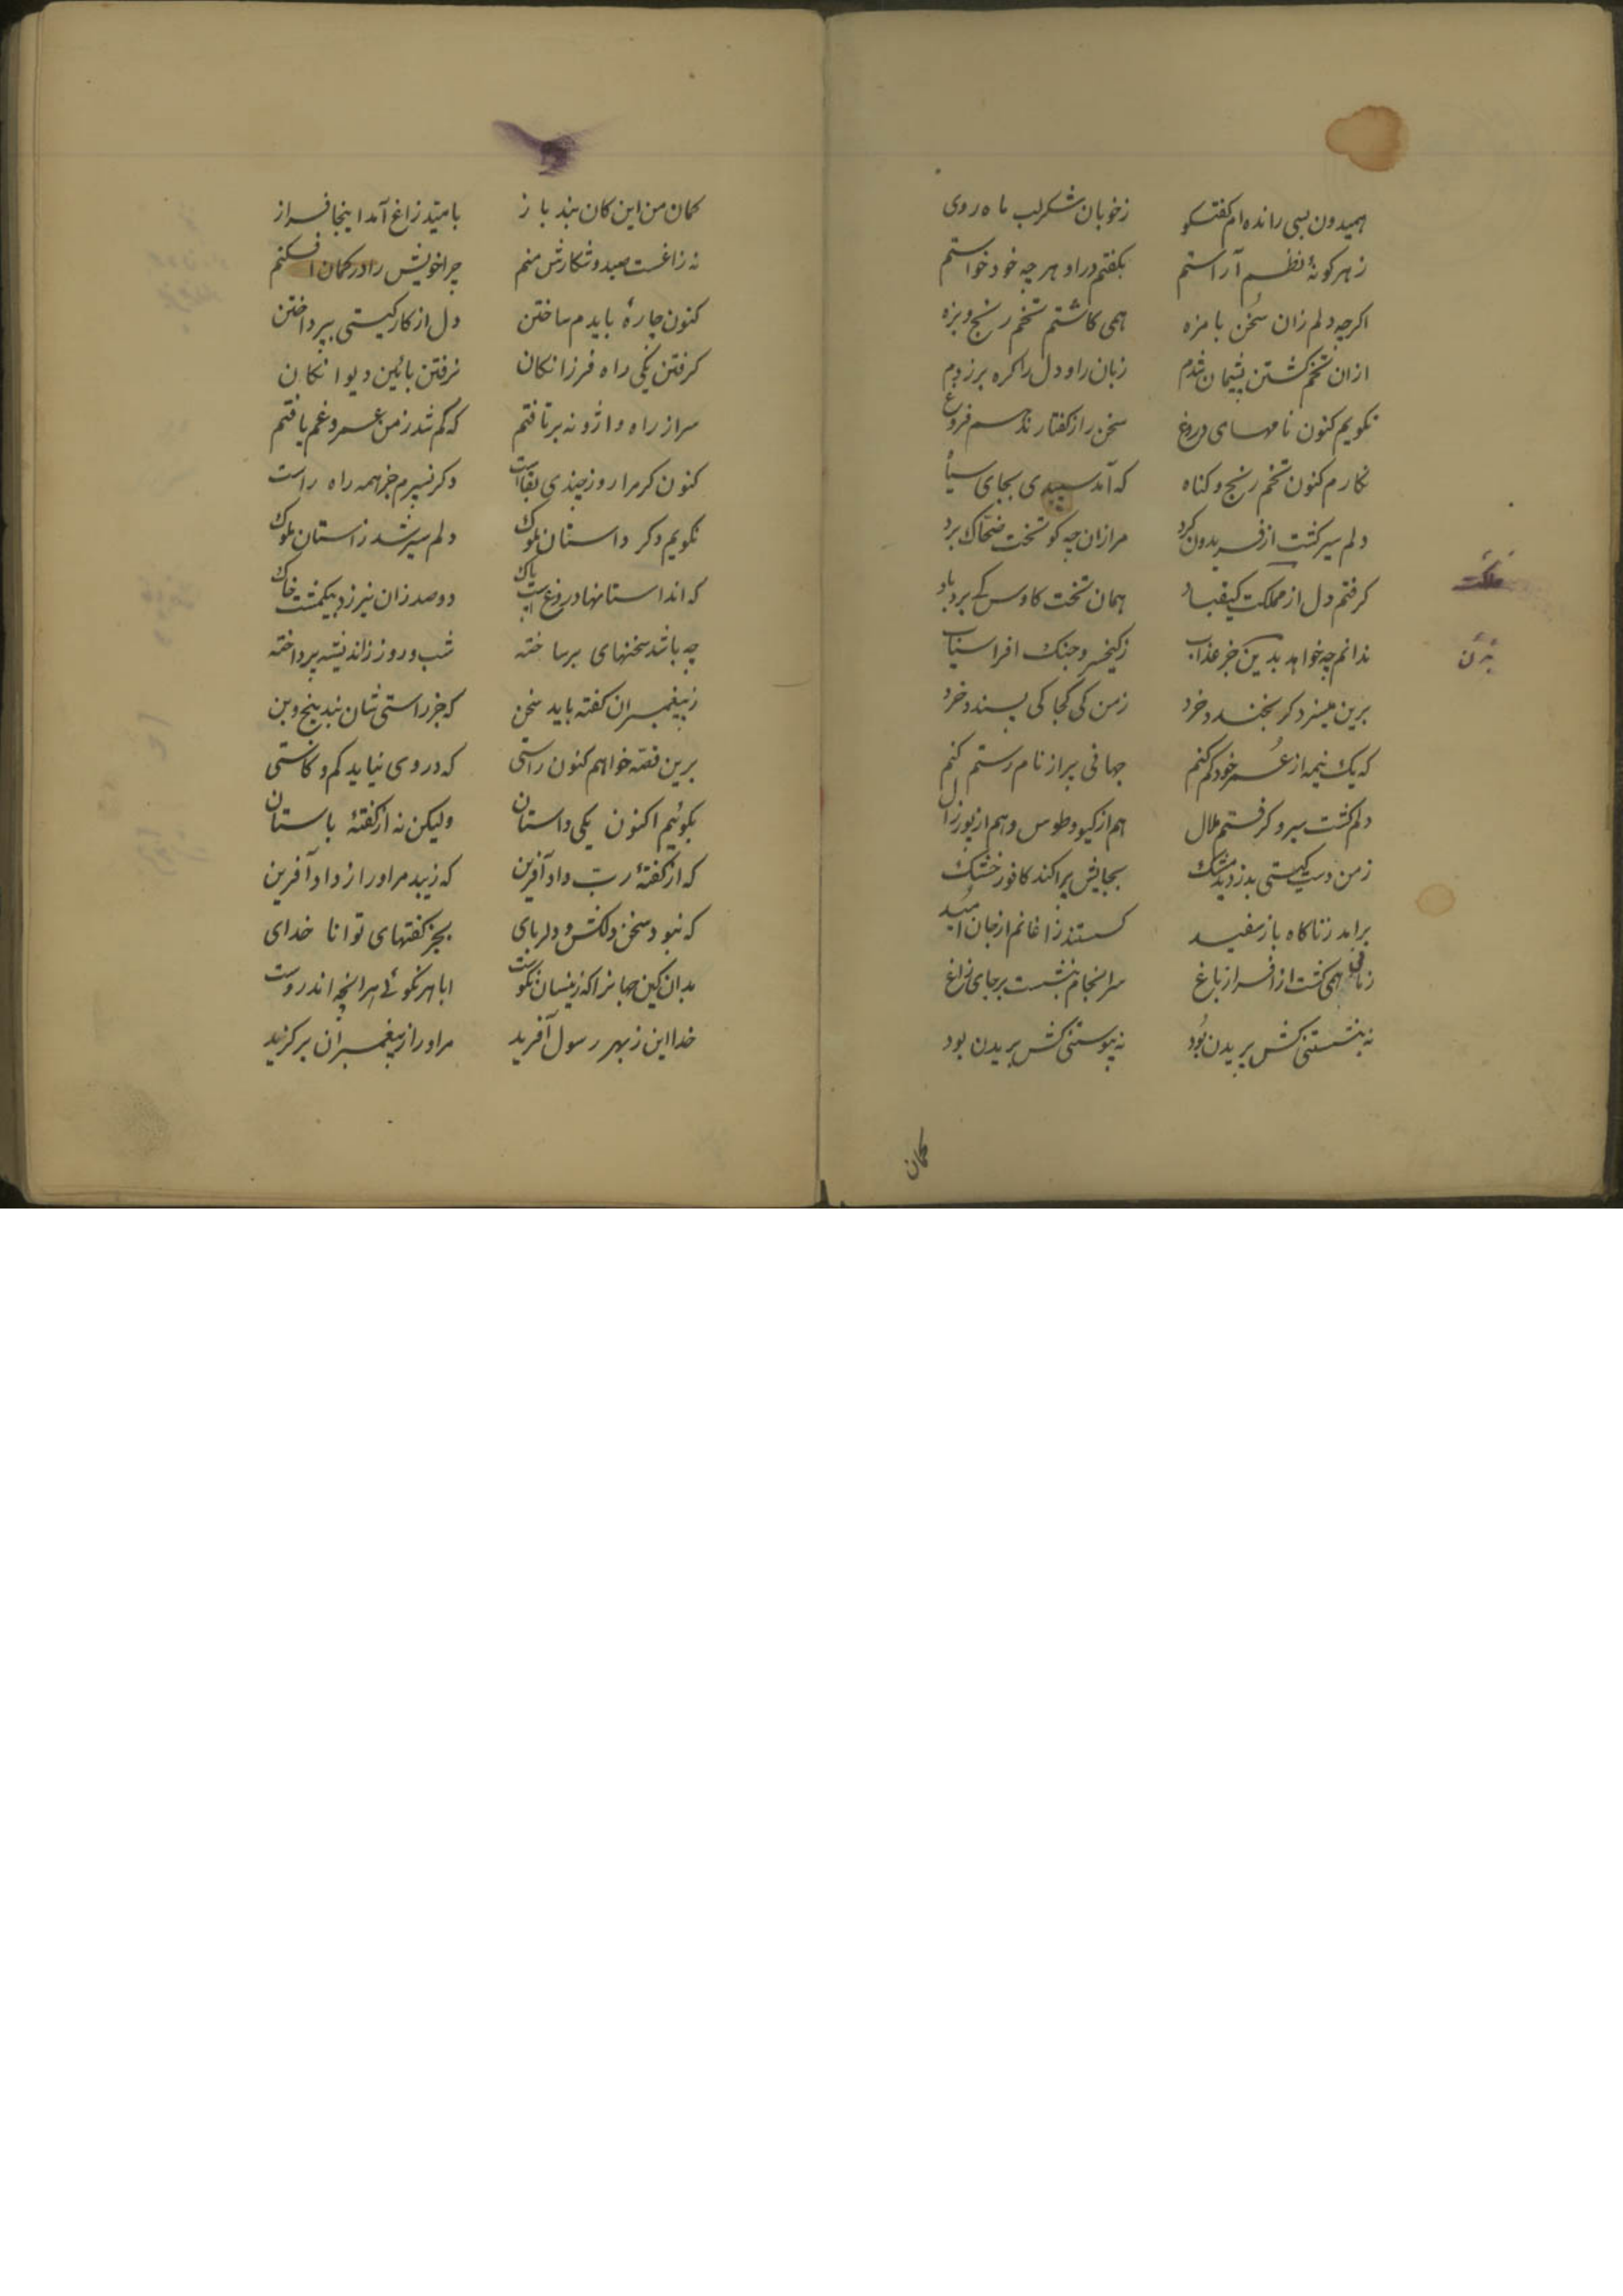 همیدون بسی رانده‌ام گفتگو
زخوبان شکر لب ماه روی
زهر گونهٔ نظم آراستم
بگفتم در او هر چه خود خواستم
اگرچه دلم زان سخن با مزه
همی کاشتم تخم رنج و بزه
ازان تخم کشتن پشیمان شدم
زبان را و دل را گره برزدم
نگویم کنون نامهای دروغ
سخن را ز گفتار ندهم فروغ
نکارم کنون تخم رنج و گناه
که آمد سپیدی بجای سیاه
دلم سیر گشت از فریدون گرد
مرا زان چه کو تخت ضحّاک برد
گرفتم دل از مملکت کیقباد
همان تخت کاوس کی برد باد
ندانم چه خواهد بدین جز عذاب
زکیخسرو جنگ افراسیاب
برین میسزد گر بخندد خرد
زمن کی کجا کی پسندد خرد
که یک نیمه از عمر خود کم کنم
جهانی پر از نام رستم کنم
دلم گشت سیر و گرفتم ملال
هم از گیو و طوس و هم از پور زال
زمن دست گیتی بدزدید مشک
بجایش پراکند کافور خشک
برآمد زناگاه باز سفید
گسستند زاغانم از جان امید
زمانی همی گشت از افراز باغ
سرانجام بنشست بر جای زاغ
نه بنشستنی کش پریدن بود
نه پیوستنی کش بریدن بود
مملکت
بدن
کمان
کمان من این کان بند باز
بامید زاغ آمد اینجا فراز
نه زاغست صید و شکارش منم
چرا خویش را در کمان افکنم
کنون چارهٔ بایدم ساختن
دل از کار گیتی بپرداختن
گرفتن یکی راه فرزانگان
نرفتن بآئین دیوانگان
سر از راه واژونه برتافتم
که کم شد زمن عمر و غم یافتم
کنون گر مرا روز چندی بقاست
دگر نسپرم جز همه راه راست
نگویم دگر داستان ملوک
دلم سیر شد زآستان ملوک
که آن داستانها دروغ است پاک
دو صد زان نیرزد بیکمشت خاک
چه باشد سخنهای برساخته
شب و روز زاندیشه پرداخته
زپیغمبران گفته باید سخن
که جز راستی شان نبد بیخ و بن
برین قصه خواهم کنون راستی
که در وی نیاید کم و کاستی
بگوئیم اکنون یکی داستان
ولیکن نه از گفتهٔ باستان
که از گفتهٔ ربّ داد آفرین
که زیبد مر او را ز داد آفرین
که نبود سخن دلکش و دلربای
بجز گفتهای توانا خدای
بدان کین جهانرا که زینسان نکوست
ابا هر نکوئی هر آنچه اندروست
خدا این زبهر رسول آفرید
مر او را ز پیغمبران برگزید